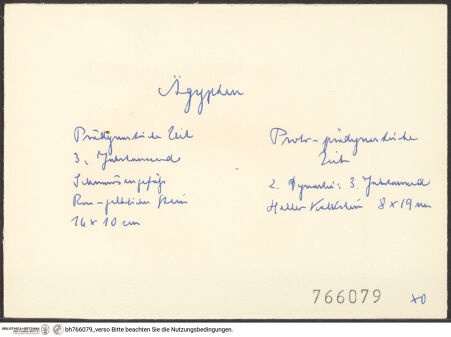 Ägypten
Prädynastische Zeit
3. Jahrtausend
14 x 10 cm
Proto-prädynastische
Zeit
2. Dynastie: 3. Jahrtausend
Heller Kalkstein 8 x 19 cm
766079
BIBLIOTHECA HERTZIANA bh766079_verso Bitte beachten Sie die Nutzungsbedingungen.